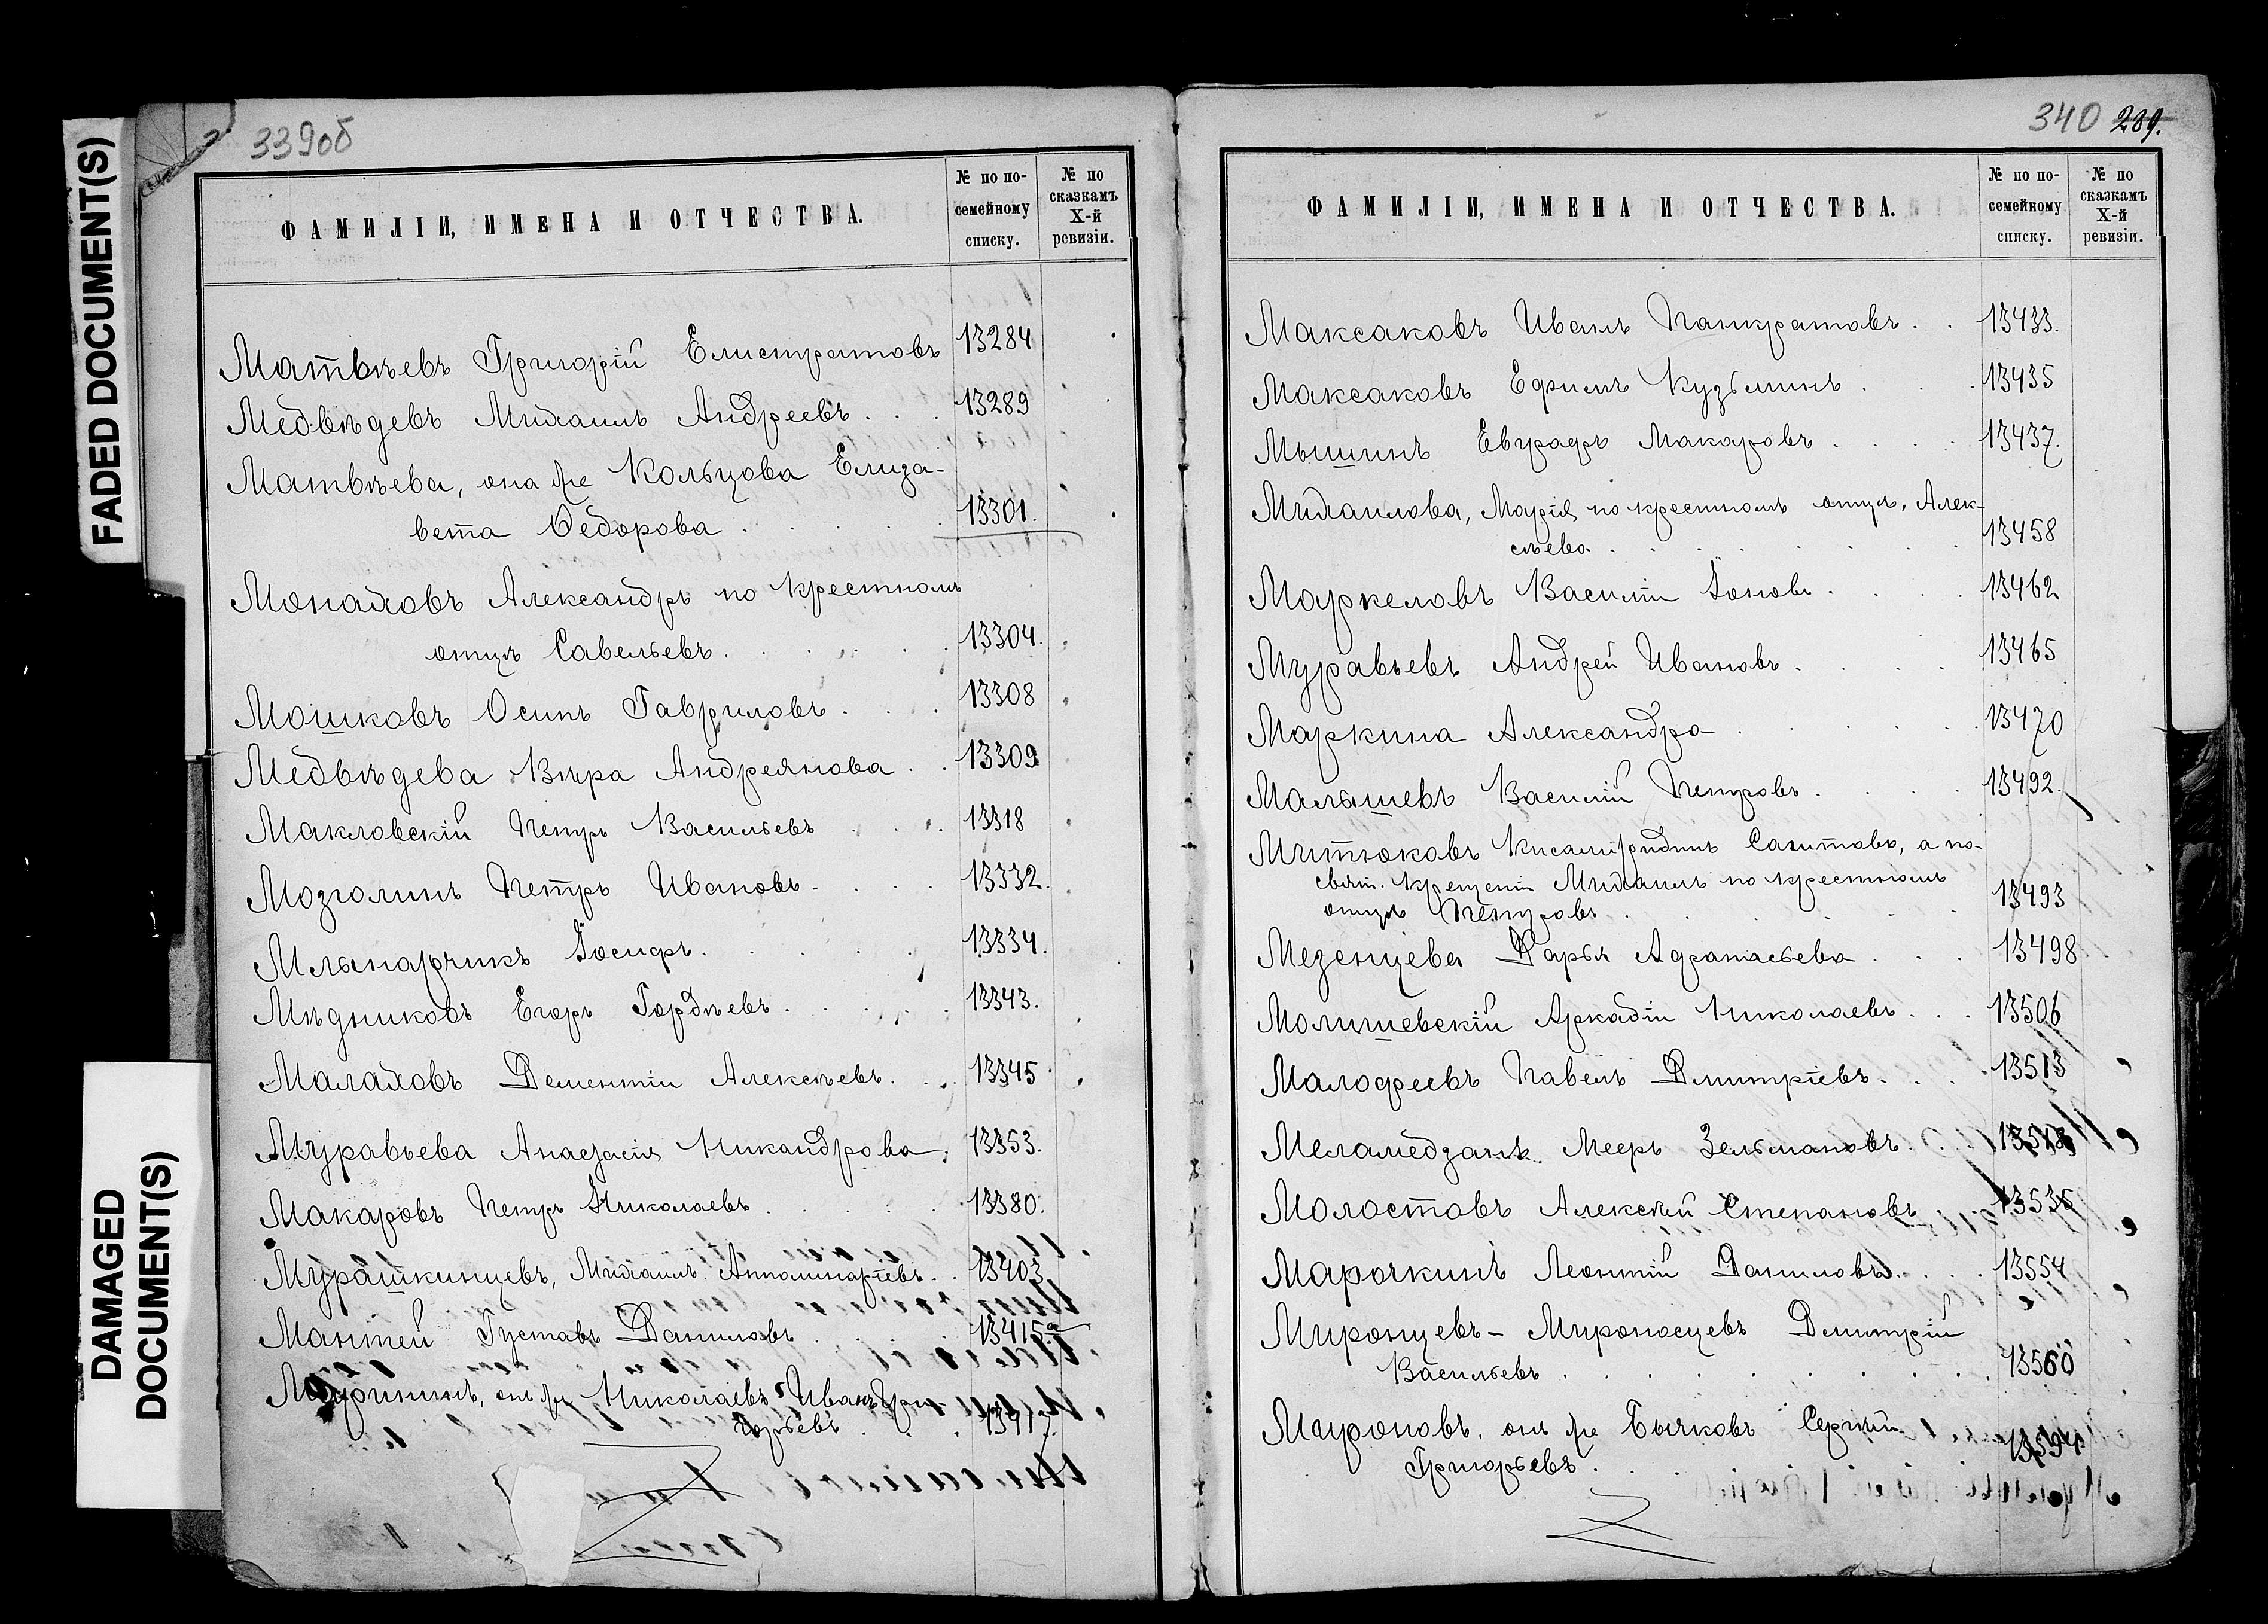 FADED DOCUMENT(S)
DAMAGED
DOCUMENT(S)
339об
ФАМИЛІИ, ИМЕНА И ОТЧЕСТВА.
№ по по-
семейному
списку.
№ по
сказкамъ
X-й
ревизіи.
Матвѣевъ Григорій Елистратовъ 13284
Медвѣдевъ Михаилъ Андреевъ . . . 13289
Матвѣева, она же Кольцова Елиза-
вета Ѳедорова . . . . . 13301.
Монаховъ Александръ по крестному
отцу Савельевъ . . . . . 13304.
Мошковъ Осипъ Гавриловъ . . . 13308
Медвѣдева Вѣра Андреянова . . 13309
Макловскій Петръ Васильевъ . . . 13318
Мозголинъ Петръ Ивановъ . . . . 13332.
Млынарчикъ Іосифъ . . . . . 13334.
Мѣдниковъ Егоръ Гордѣевъ . . . . 13343.
Малаховъ Дементій Алексѣевъ . . . 13345
Муравьева Анастасія Никандрова . 13353.
Макаровъ Петръ Николаевъ . . . . 13380.
Мурашкинцевъ, Михаилъ Апполинаріевъ . . 13403
Мантей Густавъ Даниловъ . . . . 13415а
онъ же Николаевъ Иванъ Гри-
горьевъ . . . 13417.
340 289.
ФАМИЛІИ, ИМЕНА И ОТЧЕСТВА.
№ по по-
семейному
списку.
№ по
сказкамъ
X-й
ревизіи.
Максаковъ Иванъ Панкратовъ . . 13433.
Максаковъ Ефимъ Кузьминъ . . . 13435
Мышинъ Евграфъ Макаровъ . . . . 13437.
Михаилова, Марія по крестному отцу, Алек-
сѣева . . . . . . . 13458
Маркеловъ Василій Іоновъ . . . . 13462
Муравьевъ Андрей Ивановъ . . . . 13465
Маркина Александра . . . . . 13470
Малышевъ Василій Петровъ . . . . 13492.
Митюковъ Сагитовъ, а по
свят. крещеніи Михаилъ по крестному
отцу Петровъ . . . . 13493
Мезенцева Дарья Афанасьева . . . 13498
Аркадій Николаевъ . . . 13506
Малофеевъ Павелъ Дмитріевъ . . . . 13513
Меламедзанъ Мееръ Зельмановъ . .
Молостовъ Алексѣй Степановъ 13535
Марочкинъ Леонтій Даниловъ . . . . 13554
Миронцевъ - Мироносцевъ Дмитрій
Васильевъ . . . . . . . . . 13560
онъ же Бычковъ Сергѣй
Григорьевъ . . . 13594